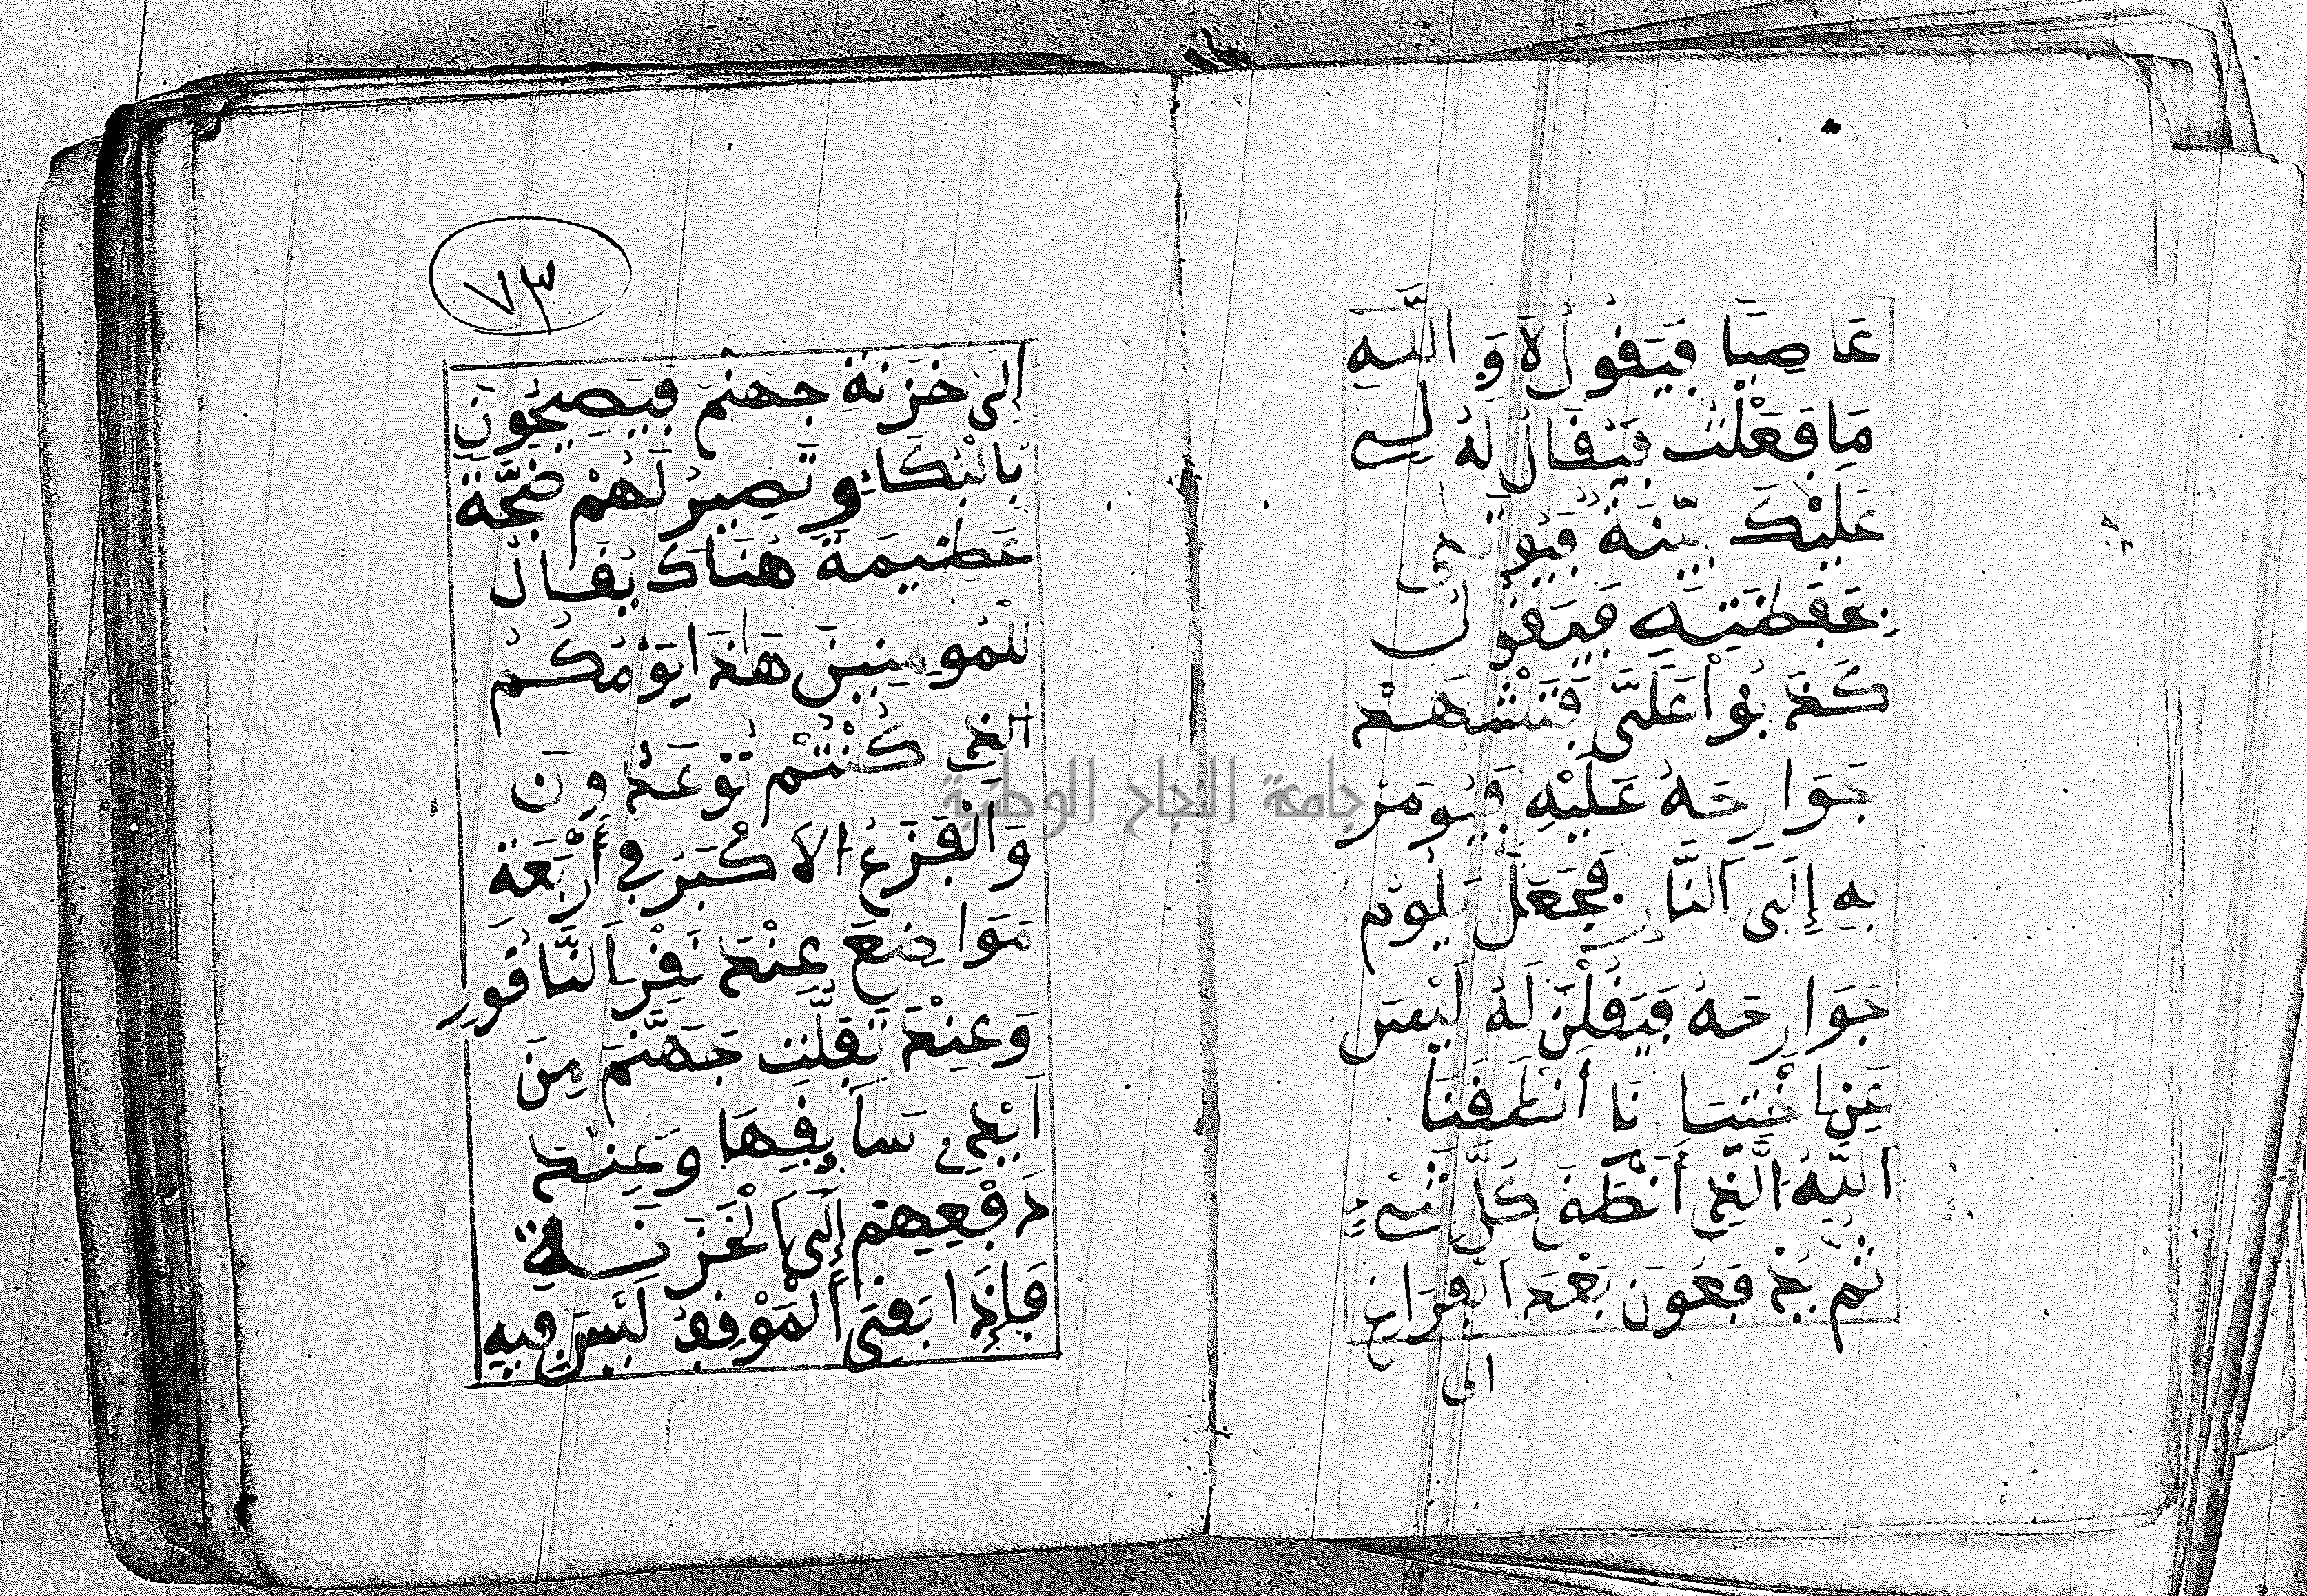 عَاصِيًا فَيَقُولُ لَا وَاللَّهِ
مَا فَعَلْتُ فَيُقَالُ لَهُ لِي
عَلَيْكَ بَيِّنَةٌ فَيُوتَى
بِحَفَظَتِهِ فَيَقُولُ
كَذَبُوا عَلَيَّ فَتَشْهَدُ
جَوَارِحُهُ عَلَيْهِ فَيُومَرُ
بِهِ إِلَى النَّارِ فَجَعَلَ يَلُومُ
جَوَارِحَهُ فَيَقُلْنَ لَهُ لَيْسَ
عَنِ اخْتِيَارِنَا أَنْطَقَنَا
اللَّهُ الَّذِي أَنْطَقَ كُلَّ شَيْءٍ
ثُمَّ يُدْفَعُونَ بَعْدَ الْفَرَاغِ
الى
٧٣
إِلَى خَزَنَةِ جَهَنَّمَ فَيَصِيحُونَ
بِالْبُكَاءِ وَتَصِيرُ لَهُمْ ضَجَّةٌ
عَظِيمَةٌ هُنَاكَ يُقَالُ
لِلْمُومِنِينَ هَذَا يَوْمُكُمُ
الَّذِي كُنْتُمْ تُوعَدُونَ
وَالْفَزَعُ الْأَكْبَرُ فِي أَرْبَعَةِ
مَوَاضِعَ عِنْدَ نَقْرِ النَّاقُورِ
وَعِنْدَ تَفَلُّتِ جَهَنَّمَ مِنْ
أَيْدِي سَائِقِيهَا وَعِنْدَ
دَفْعِهِمْ إِلَى الْخَزَنَةِ
فَإِذَا بَقِيَ الْمَوْقِفُ لَيْسَ فِيهِ
جامعة النجاح الوطنية